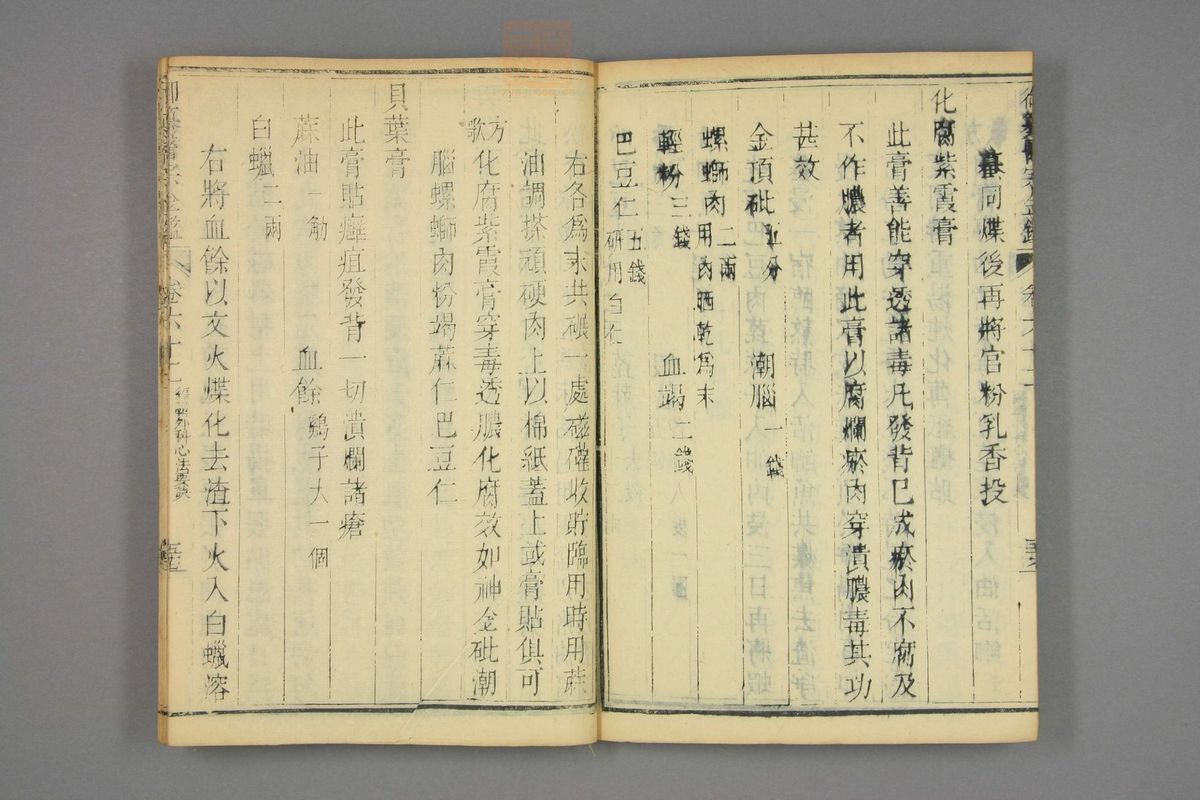 蟇同煠後再將官粉乳香投
化腐紫霞膏
此膏善能穿透諸毒凡發背已成瘀肉不腐及
不作膿者用此膏以腐爛瘀肉穿潰膿毒其功
甚效
金頂砒五分　潮腦一錢
螺螄肉二兩用肉晒乾爲末
輕粉三錢　血竭二錢
巴豆仁五錢研用白仁
右各爲末共碾一處磁罐收貯臨用時用蔴
油調搽頑硬肉上以棉紙蓋上或膏貼俱可
方歌化腐紫霞膏穿毒透膿化腐效如神金砒潮
腦螺螄肉粉竭蔴仁巴豆仁
貝葉膏
此膏貼癰疽發背一切潰爛諸瘡
蔴油一觔　血餘鷄子大一個
白蠟二兩
右將血餘以文火煠化去渣下火入白蠟溶
卷六十二
外科心法要訣